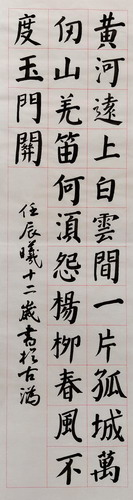 黃河遠上白雲間一片孤城萬
仞山羌笛何須怨楊柳春風不
度玉門關
任辰曦十二歲書於古滿